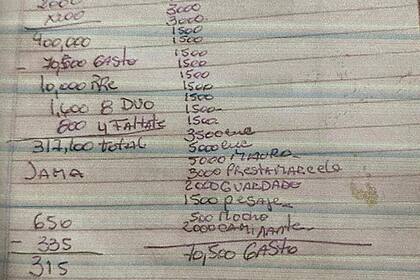 2000
x200
400,000
- 70,500 GASTO
10,000
1,600 8 DUO
800 4 Faltats
317,100 TOTAL
JAMA
650
- 335
315
3000
3000
1500
1500
1500
1500
1500
1500
1500
1500
1500
3500
5000
5000 MAURO
3000 PRESTA MARCELO
2000 GUARDADO
1500 pesaje
500 Mocho
2000 CAMINANTE
70,500 GASTO